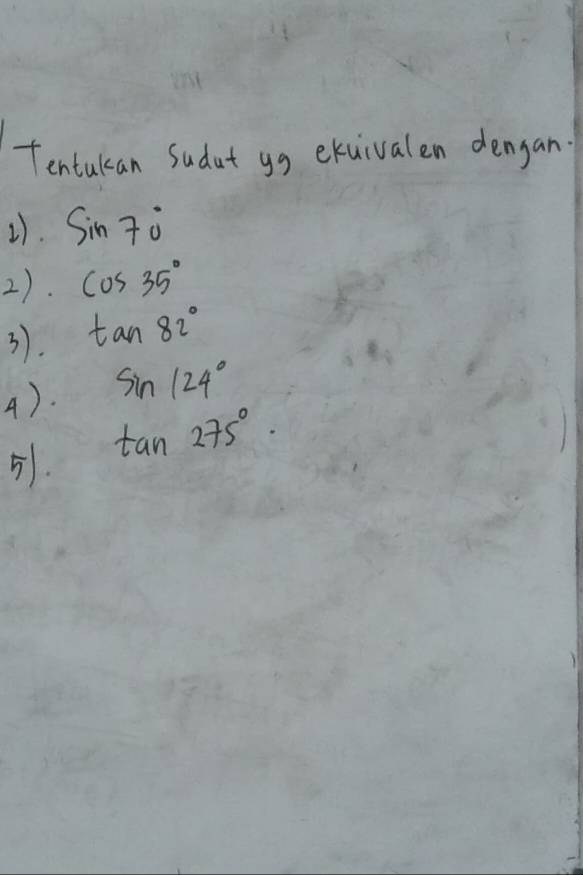 Tentukan sudut yg ekuivalen dengan.
1). Sin 70°
2). Cos 35°
3). tan 82°
4). Sin 124°
5). tan 275°.